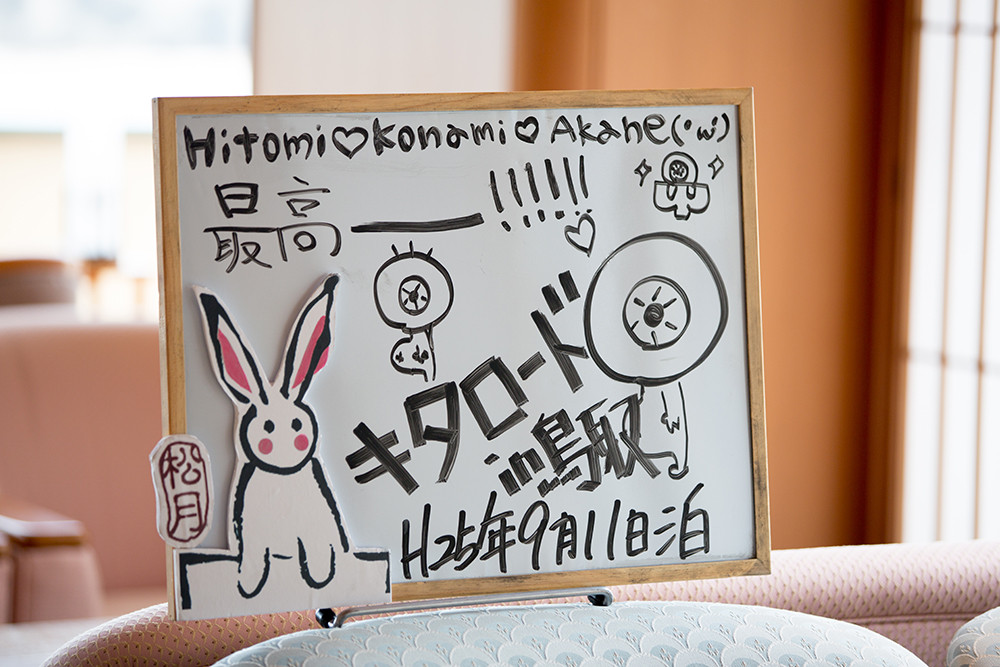 Hitomi♡Konami♡Akane(･ω･)
最高ー!!!!!!♡
キタロード
in鳥取
H25年9月11日泊
松月